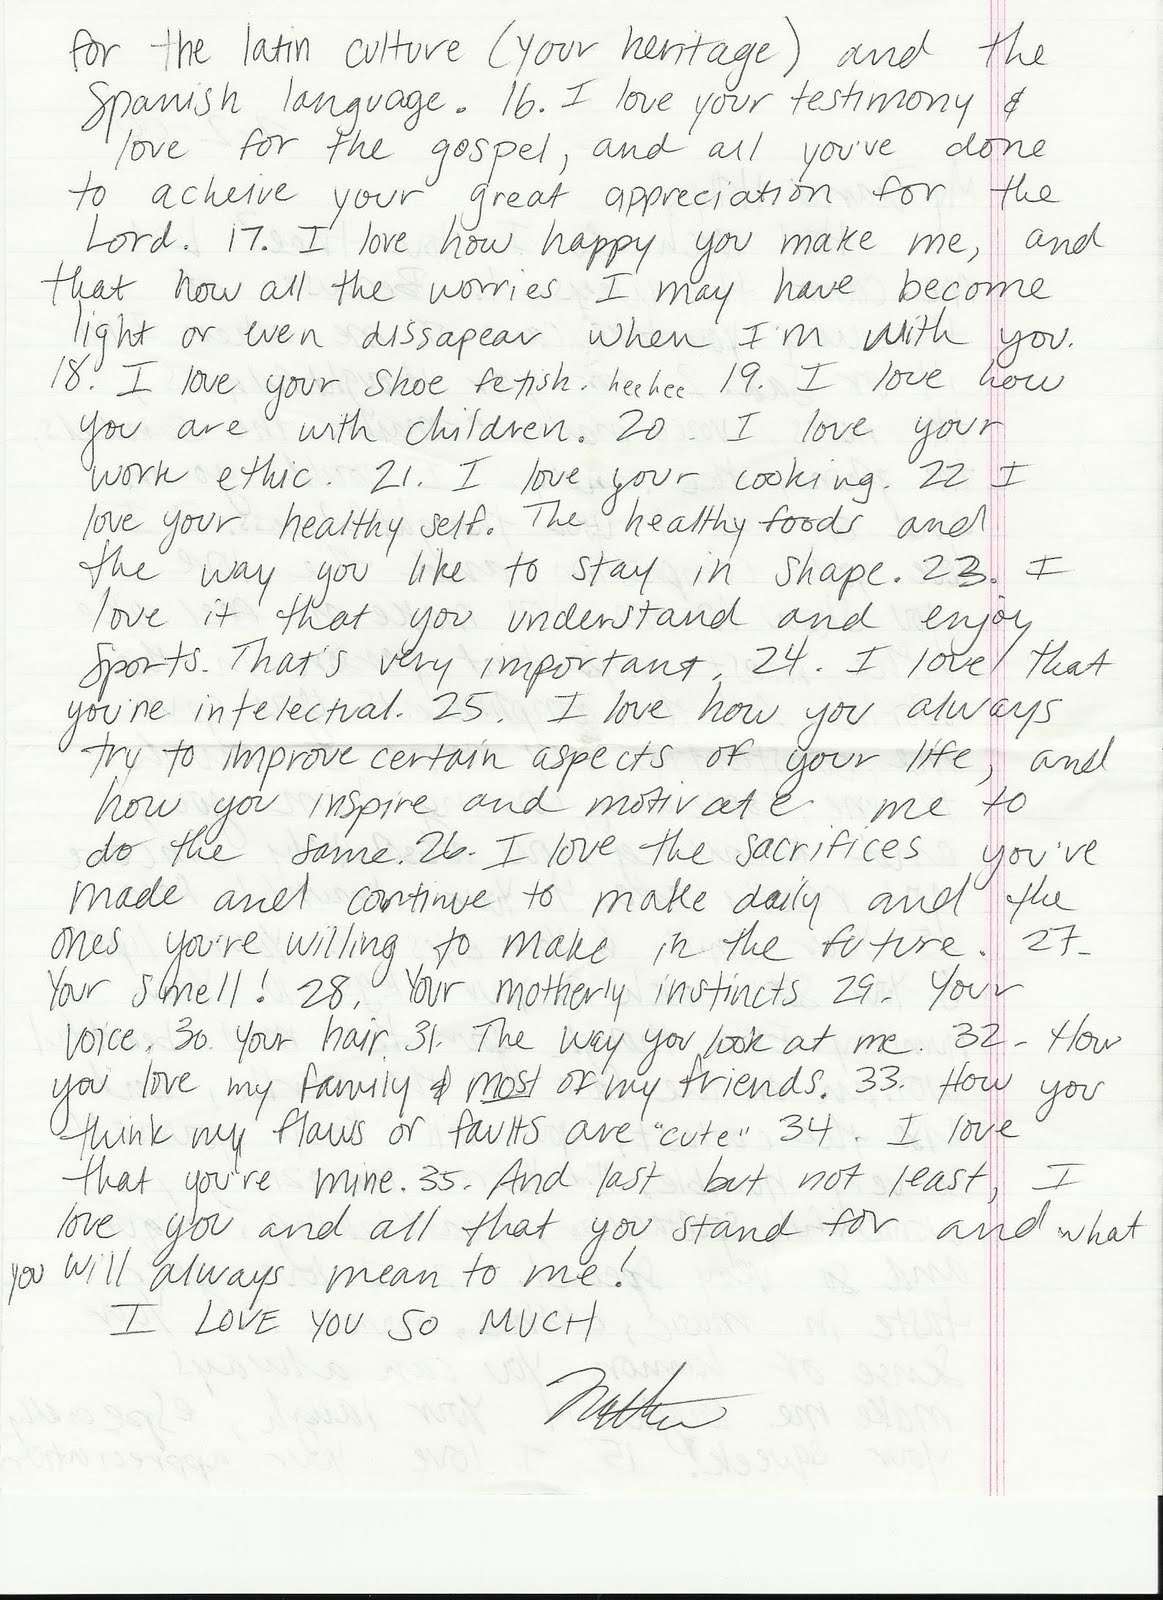 for the latin culture (your heritage) and the
Spanish language. 16. I love your testimony &
love for the gospel, and all you've done
to acheive your great appreciation for the
Lord. 17. I love how happy you make me, and
that how all the worries I may have become
light or even dissapear when I'm with you.
18. I love your shoe fetish. heehee 19. I love how
you are with children. 20. I love your
work ethic. 21. I love your cooking. 22 I
love your healthy self. The healthy foods and
the way you like to stay in shape. 23. I
love it that you understand and enjoy
sports. That's very important. 24. I love that
you're intelectual. 25. I love how you always
try to improve certain aspects of your life, and
how you inspire and motivate me to
do the same. 26. I love the sacrifices you've
made and continue to make daily and the
ones you're willing to make in the future. 27-
Your smell! 28. Your motherly instincts 29- Your
voice. 30. Your hair 31. The way you look at me. 32- How
you love my family & most of my friends. 33. How you
think my flaws or faults are "cute" 34. I love
that you're mine. 35- And last but not least, I
love you and all that you stand for and what
you will always mean to me!
I LOVE YOU SO MUCH